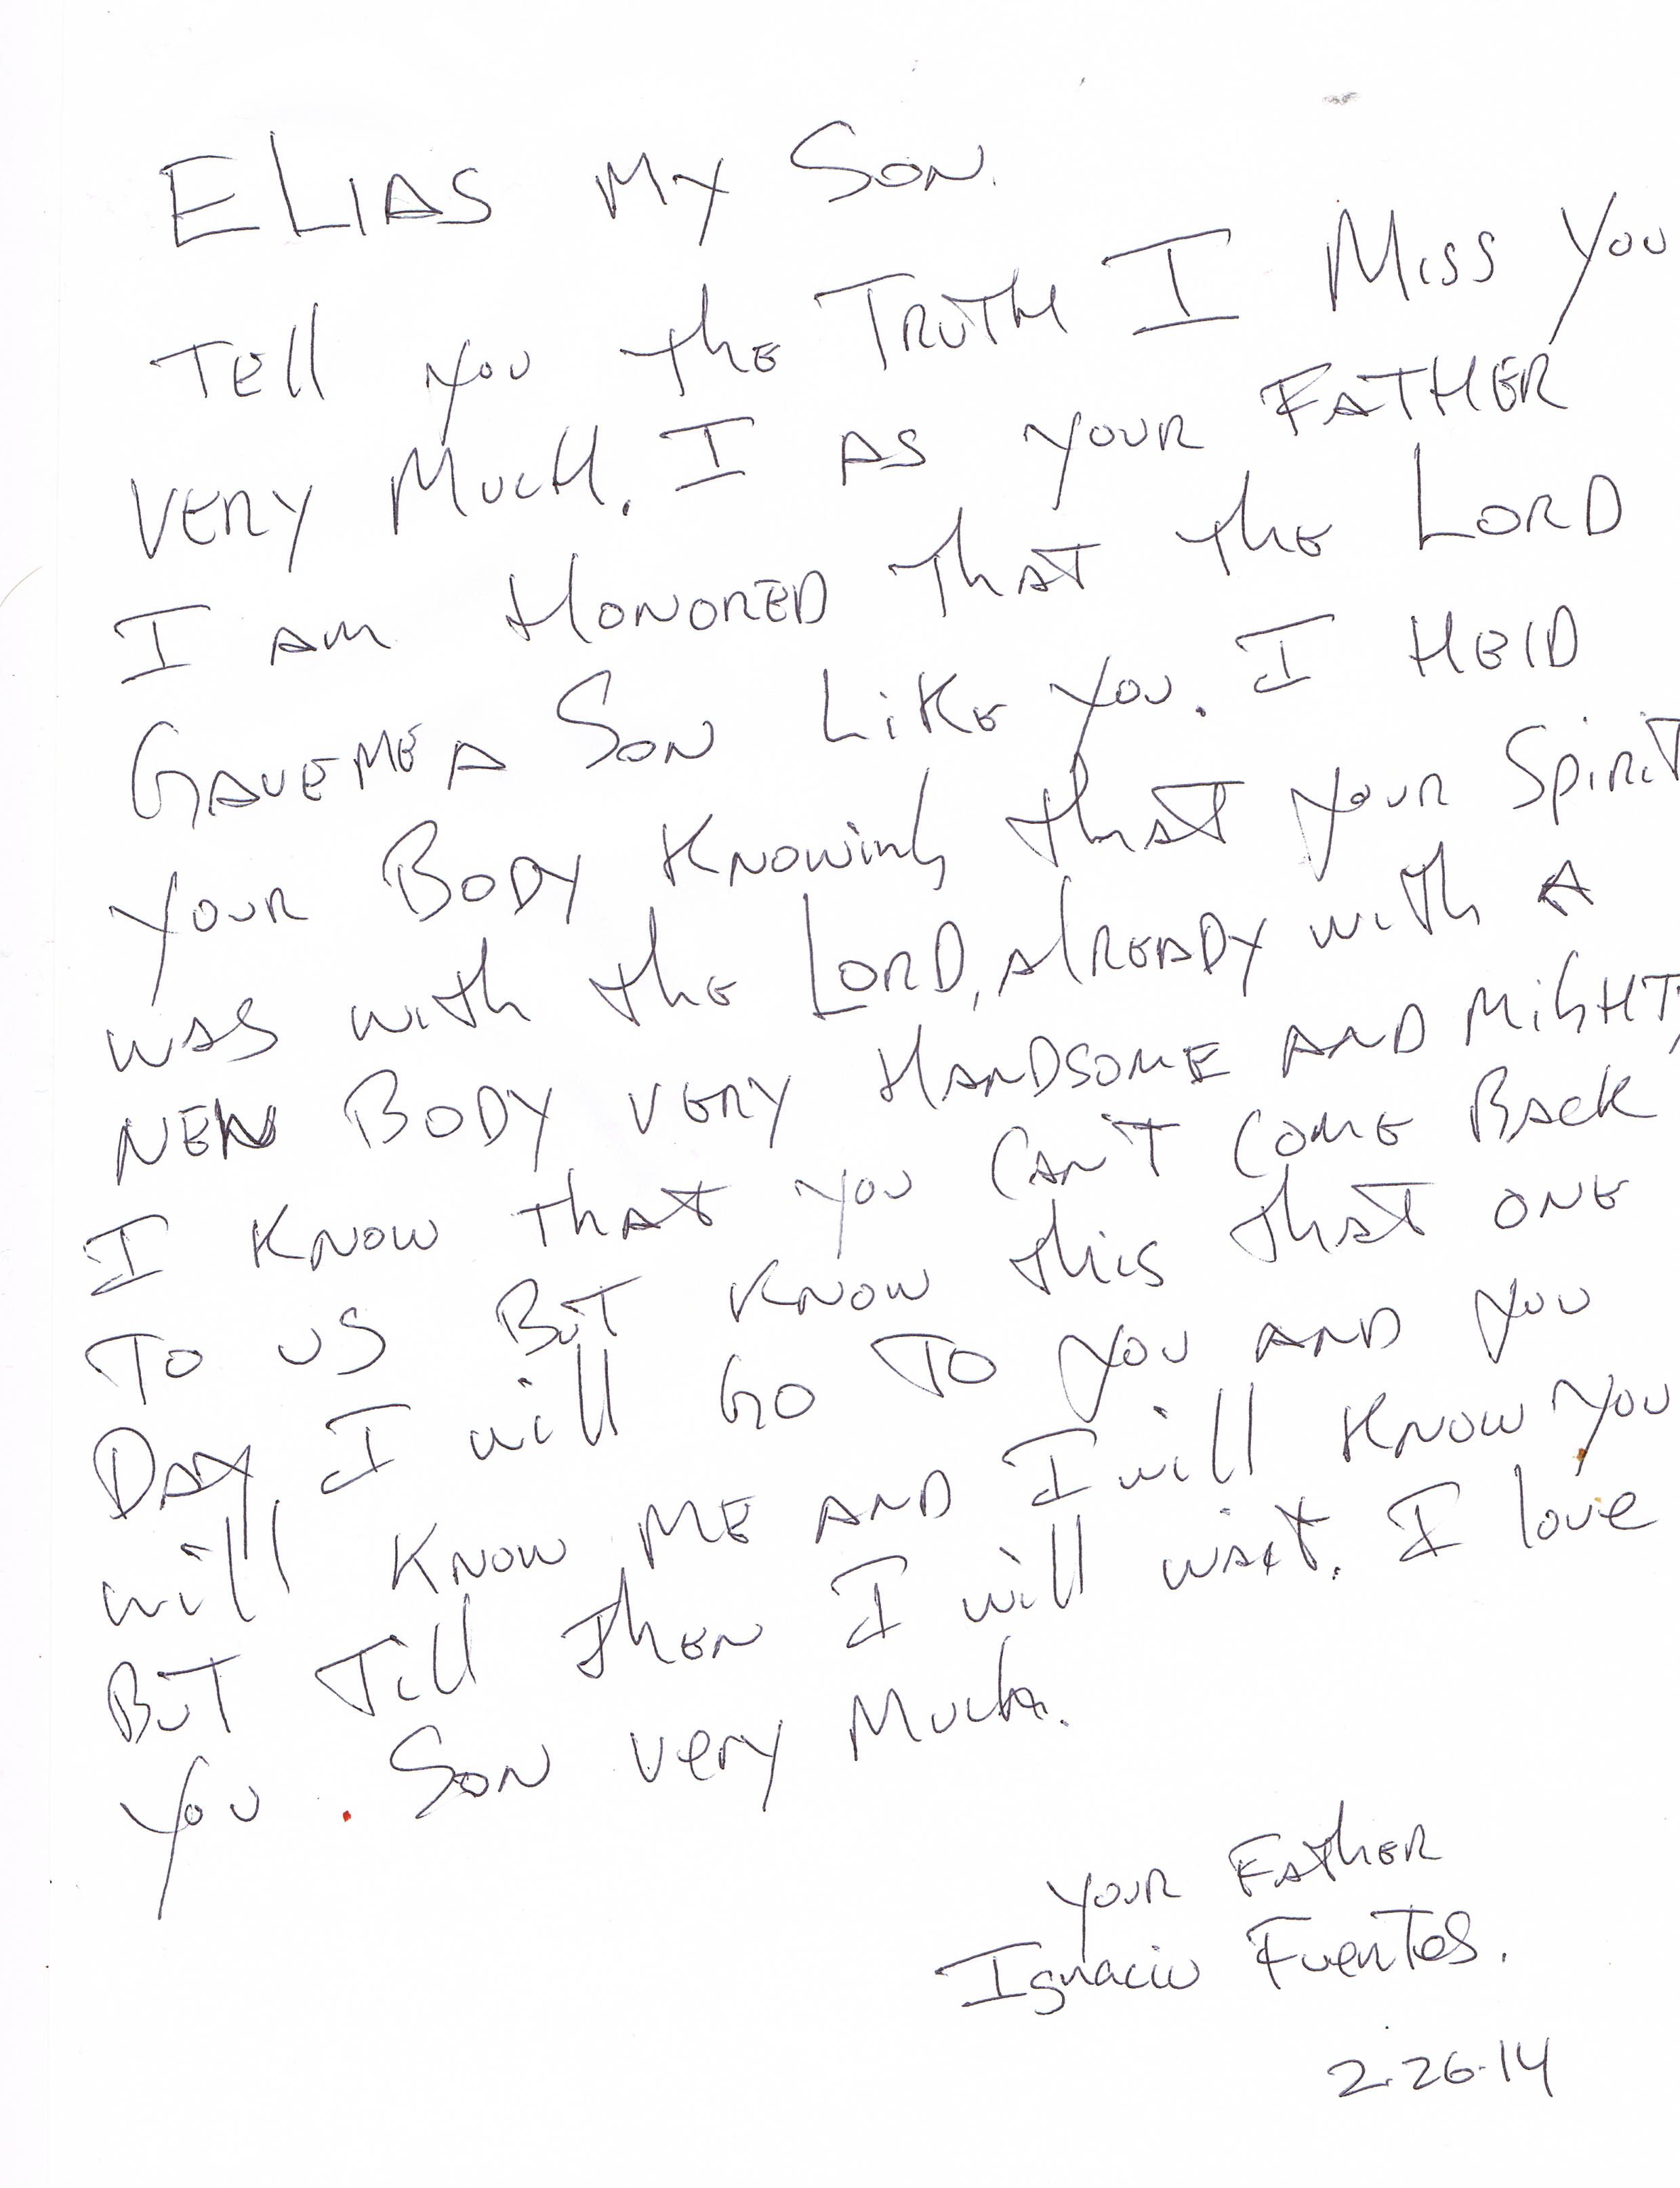 ELIAS MY SON.
TEll you the TRUTH I Miss You
VERY MucH. I AS YOUR FATHER
I am HONORED that the LORD
GAVE ME A SON LiKE you. I HElD
your BODY KNOWing that your SpiriT
was with the LORD, AlREADY with A
NEW BODY VERY HANDSOME AND MiGHT,
I KNOW that you CAN'T COME BACK
TO US BUT KNOW this that ONE
DAY, I will GO TO you AND you
will KNOW ME AND I will KNOW you
BUT Till then I will wait. I love
you. SON very Much.
YOUR FATHER
Ignacio FuenTes.
2.26.14